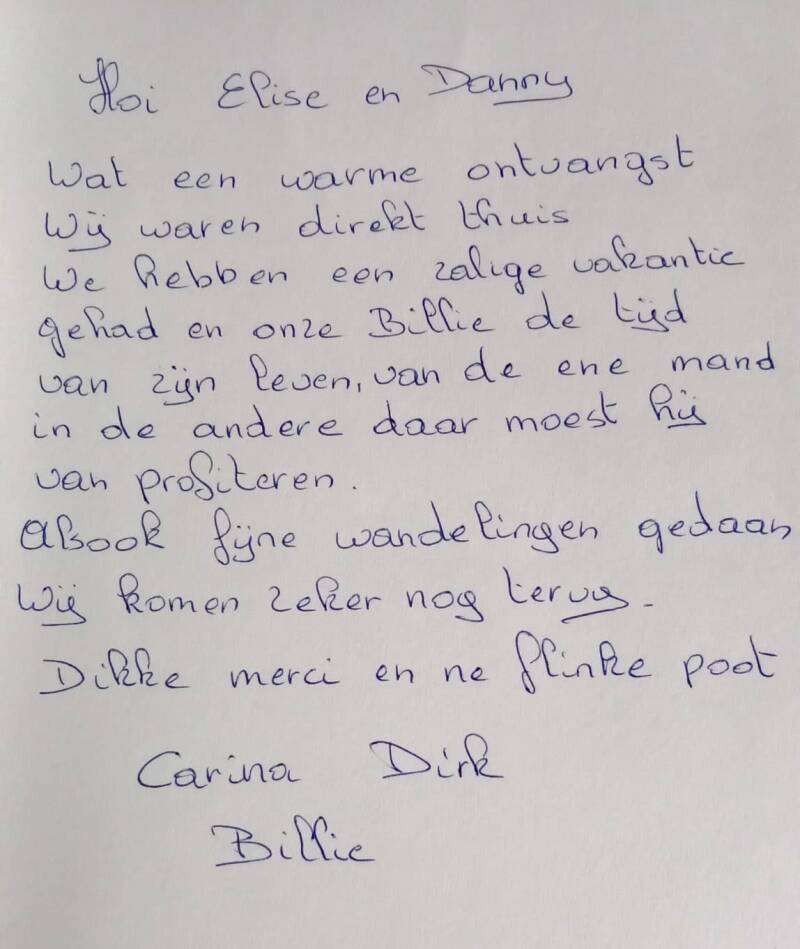 Hoi Elise en Danny
Wat een warme ontvangst
Wij waren direkt thuis
We hebben een zalige vakantie
gehad en onze Billie de tijd
van zijn leven, van de ene mand
in de andere daar moest hij
van profiteren.
Ook fijne wandelingen gedaan
Wij komen zeker nog terug.
Dikke merci en ne flinke poot
Carina Dirk
Billie